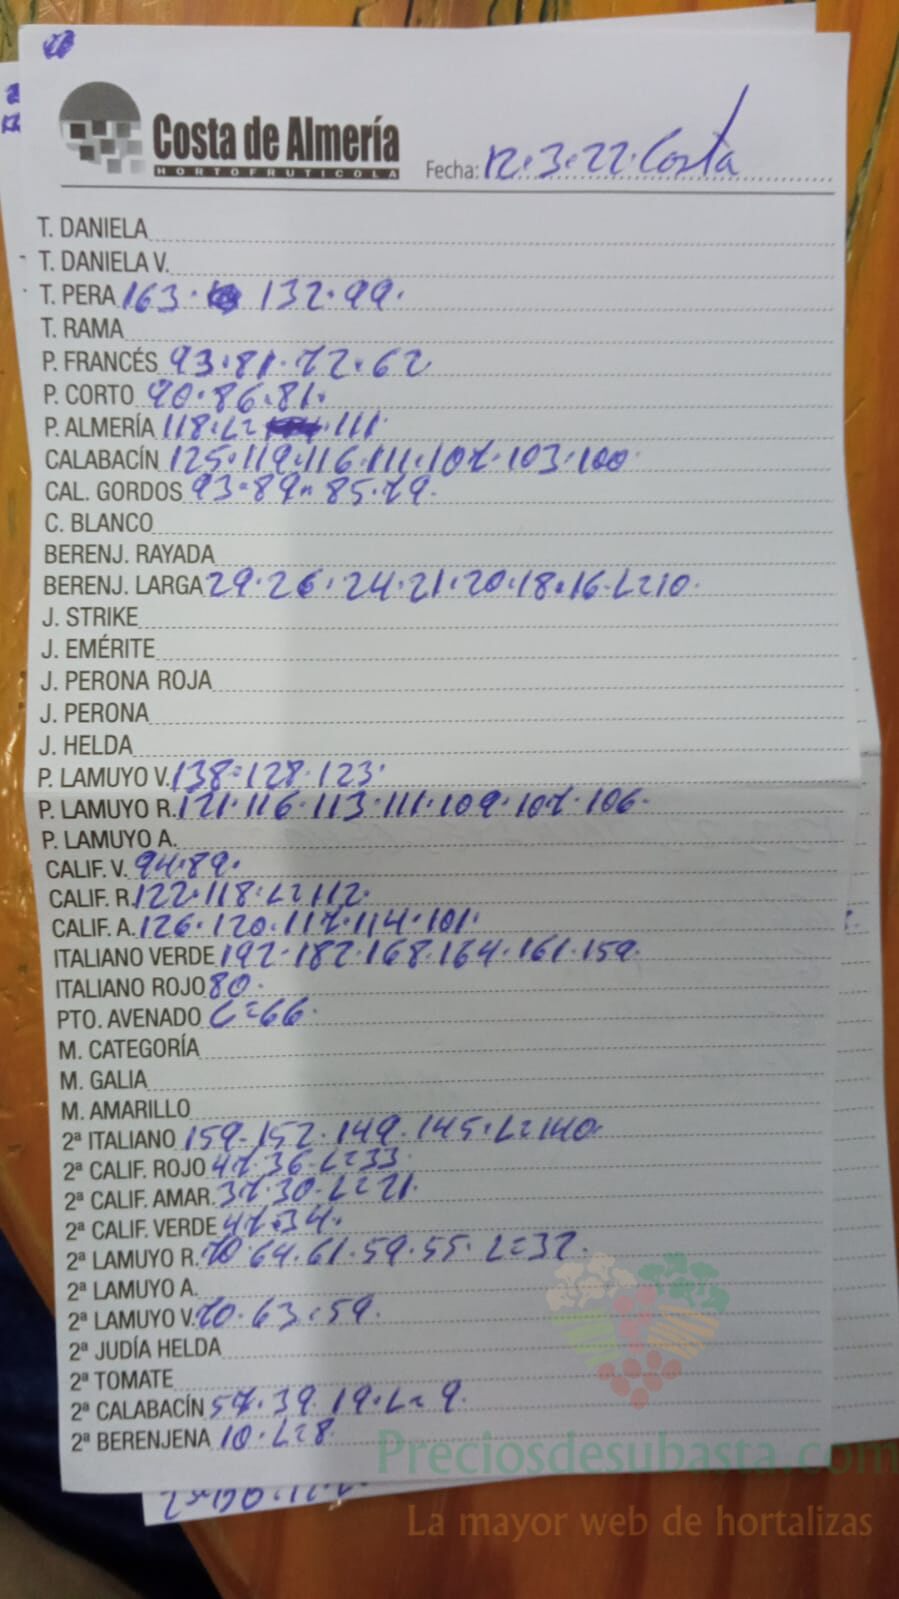 Costa de Almería
HORTOFRUTICOLA
Fecha: 12.3.22. Costa
T. DANIELA
T. DANIELA V.
T. PERA 163. 132.99.
T. RAMA
P. FRANCÉS 93.81.72.62
P. CORTO 90.86.81.
P. ALMERÍA 118.L= 111
CALABACÍN 125.119.116.111.107.103.100
CAL. GORDOS 93.89.85.79.
C. BLANCO
BERENJ. RAYADA
BERENJ. LARGA 29.26.24.21.20.18.16.L=10.
J. STRIKE
J. EMÉRITE
J. PERONA ROJA
J. PERONA
J. HELDA
P. LAMUYO V. 138=128.123.
P. LAMUYO R. 121.116.113.111.109.107.106.
P. LAMUYO A.
CALIF. V. 94.89.
CALIF. R. 122.118.L=112.
CALIF. A. 126.120.117.114.101.
ITALIANO VERDE 192.182.168.164.161.159.
ITALIANO ROJO 80.
PTO. AVENADO L=66.
M. CATEGORÍA
M. GALIA
M. AMARILLO
2ª ITALIANO 159.152.149.145.L=140
2ª CALIF. ROJO 47.36.L=33
2ª CALIF. AMAR. 37.30.L=21.
2ª CALIF. VERDE 47.34.
2ª LAMUYO R. 70.64.61.59.55.L=32.
2ª LAMUYO A.
2ª LAMUYO V. 70.63.59.
2ª JUDÍA HELDA
2ª TOMATE
2ª CALABACÍN 57.39.19.L=9.
2ª BERENJENA 10.L=8.
Preciosdesubasta.com
La mayor web de hortalizas